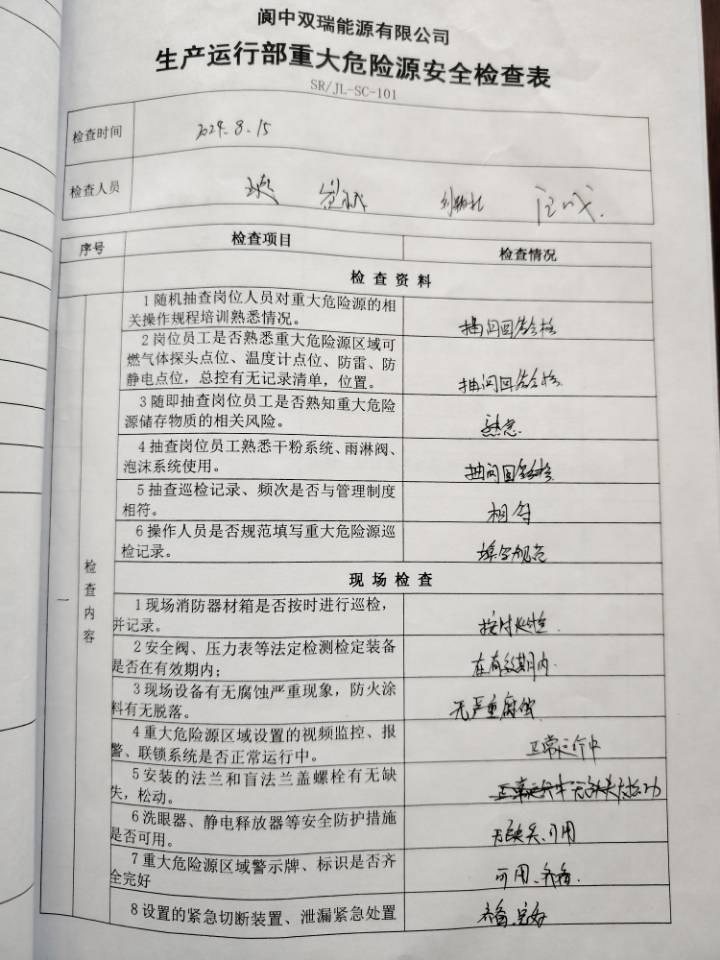 阆中双瑞能源有限公司
生产运行部重大危险源安全检查表
SR/JL-SC-101
检查时间
2024.8.15
检查人员
序号
检查项目
检查情况
检查资料
一
检查内容
1随机抽查岗位人员对重大危险源的相
关操作规程培训熟悉情况。
抽问回答合格
2岗位员工是否熟悉重大危险源区域可
燃气体探头点位、温度计点位、防雷、防
静电点位，总控有无记录清单，位置。
抽问回答合格
3随即抽查岗位员工是否熟知重大危险
源储存物质的相关风险。
熟悉
4抽查岗位员工熟悉干粉系统、雨淋阀、
泡沫系统使用。
抽问回答合格
5抽查巡检记录、频次是否与管理制度
相符。
相符
6操作人员是否规范填写重大危险源巡
检记录。
填写规范
现场检查
1现场消防器材箱是否按时进行巡检，
并记录。
按时巡检
2安全阀、压力表等法定检测检定装备
是否在有效期内；
在有效期内
3现场设备有无腐蚀严重现象，防火涂
料有无脱落。
无严重腐蚀
4重大危险源区域设置的视频监控、报
警、联锁系统是否正常运行中。
正常运行中
5安装的法兰和盲法兰盖螺栓有无缺
失，松动。
正常运行中 无缺失松动
6洗眼器、静电释放器等安全防护措施
是否可用。
无缺失、可用
7重大危险源区域警示牌、标识是否齐
全完好
可用、齐备
8设置的紧急切断装置、泄漏紧急处置
齐备、完好